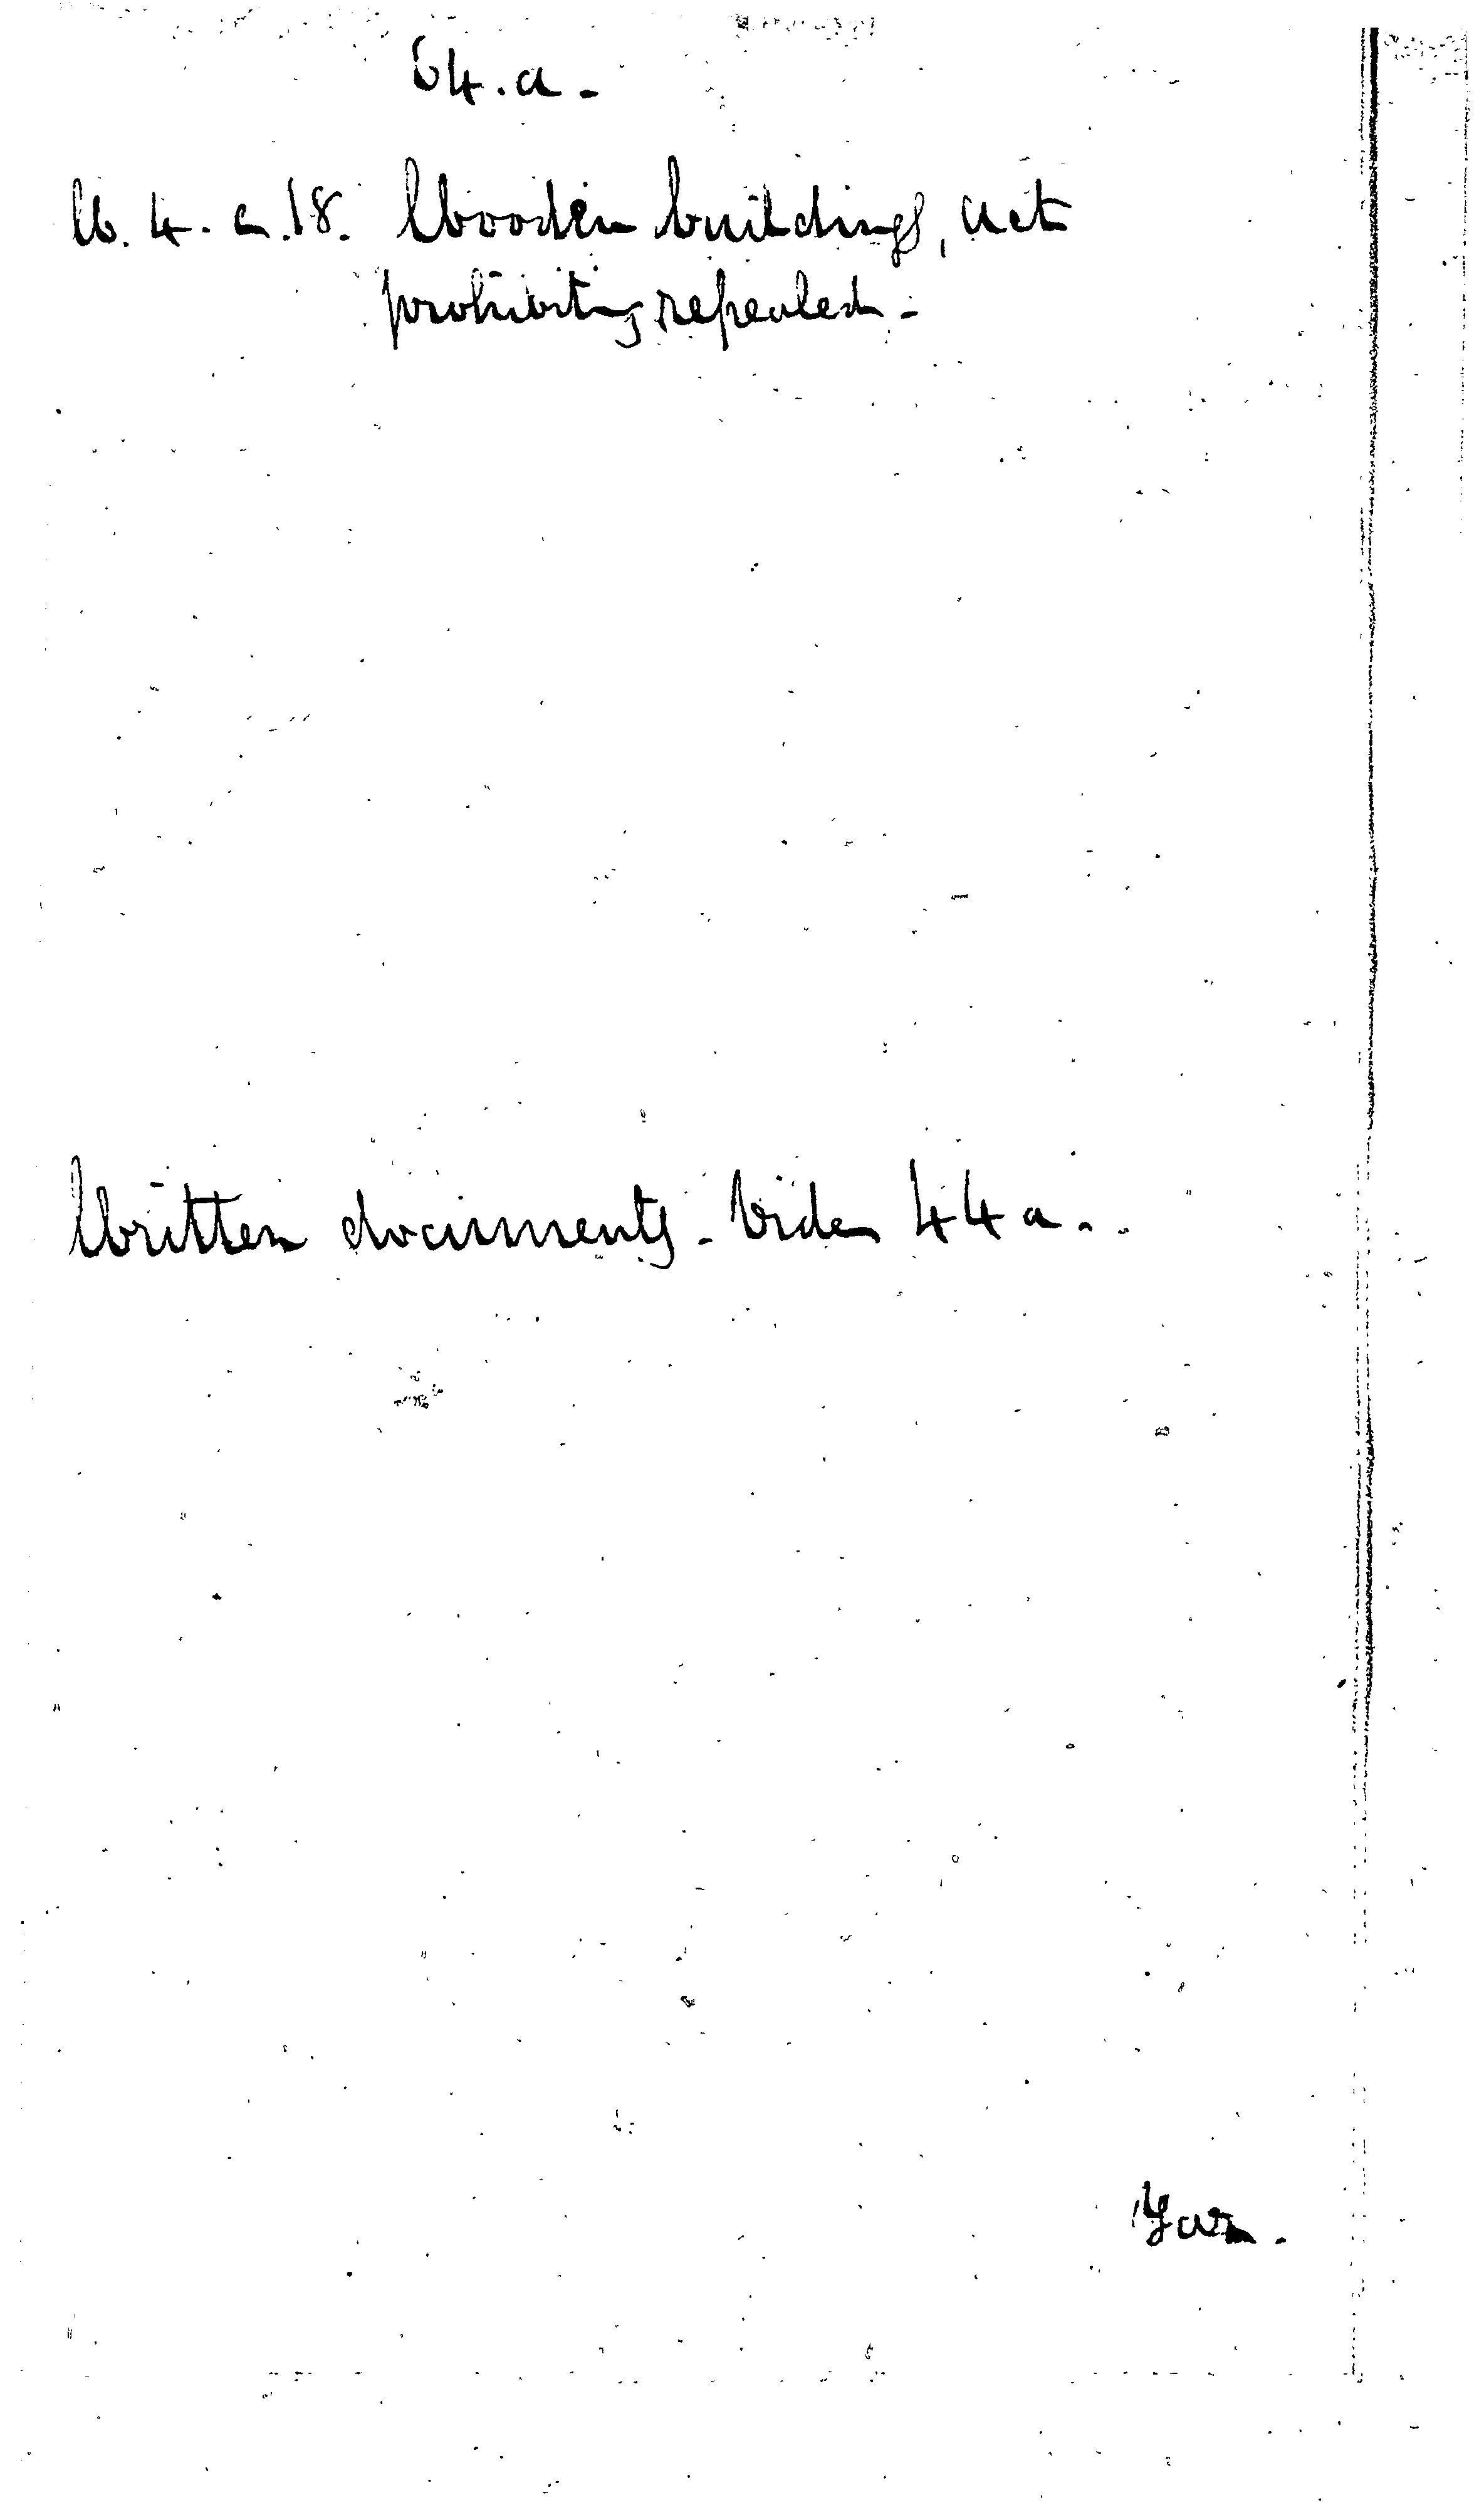 64.a-
W. 4. c. 18. Wooden buildings, act
prohibiting repealed -
Written documents - Vide 44a.